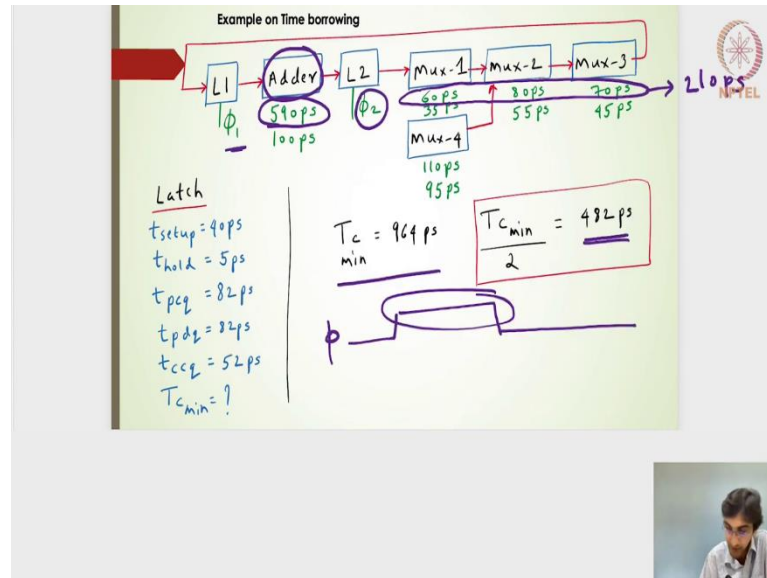 Example on Time borrowing
L1 Adder L2 Mux-1 Mux-2 Mux-3
ϕ1 590ps ϕ2 60ps 80ps 70ps → 210ps
100ps 35ps 55ps 45ps
NPTEL
Mux-4
110ps
95ps
Latch
tsetup = 40ps
thold = 5ps
tpcq = 82ps
tpdq = 82ps
tccq = 52ps
Tcmin = ?
Tc min = 964 ps
Tcmin / 2 = 482 ps
ϕ